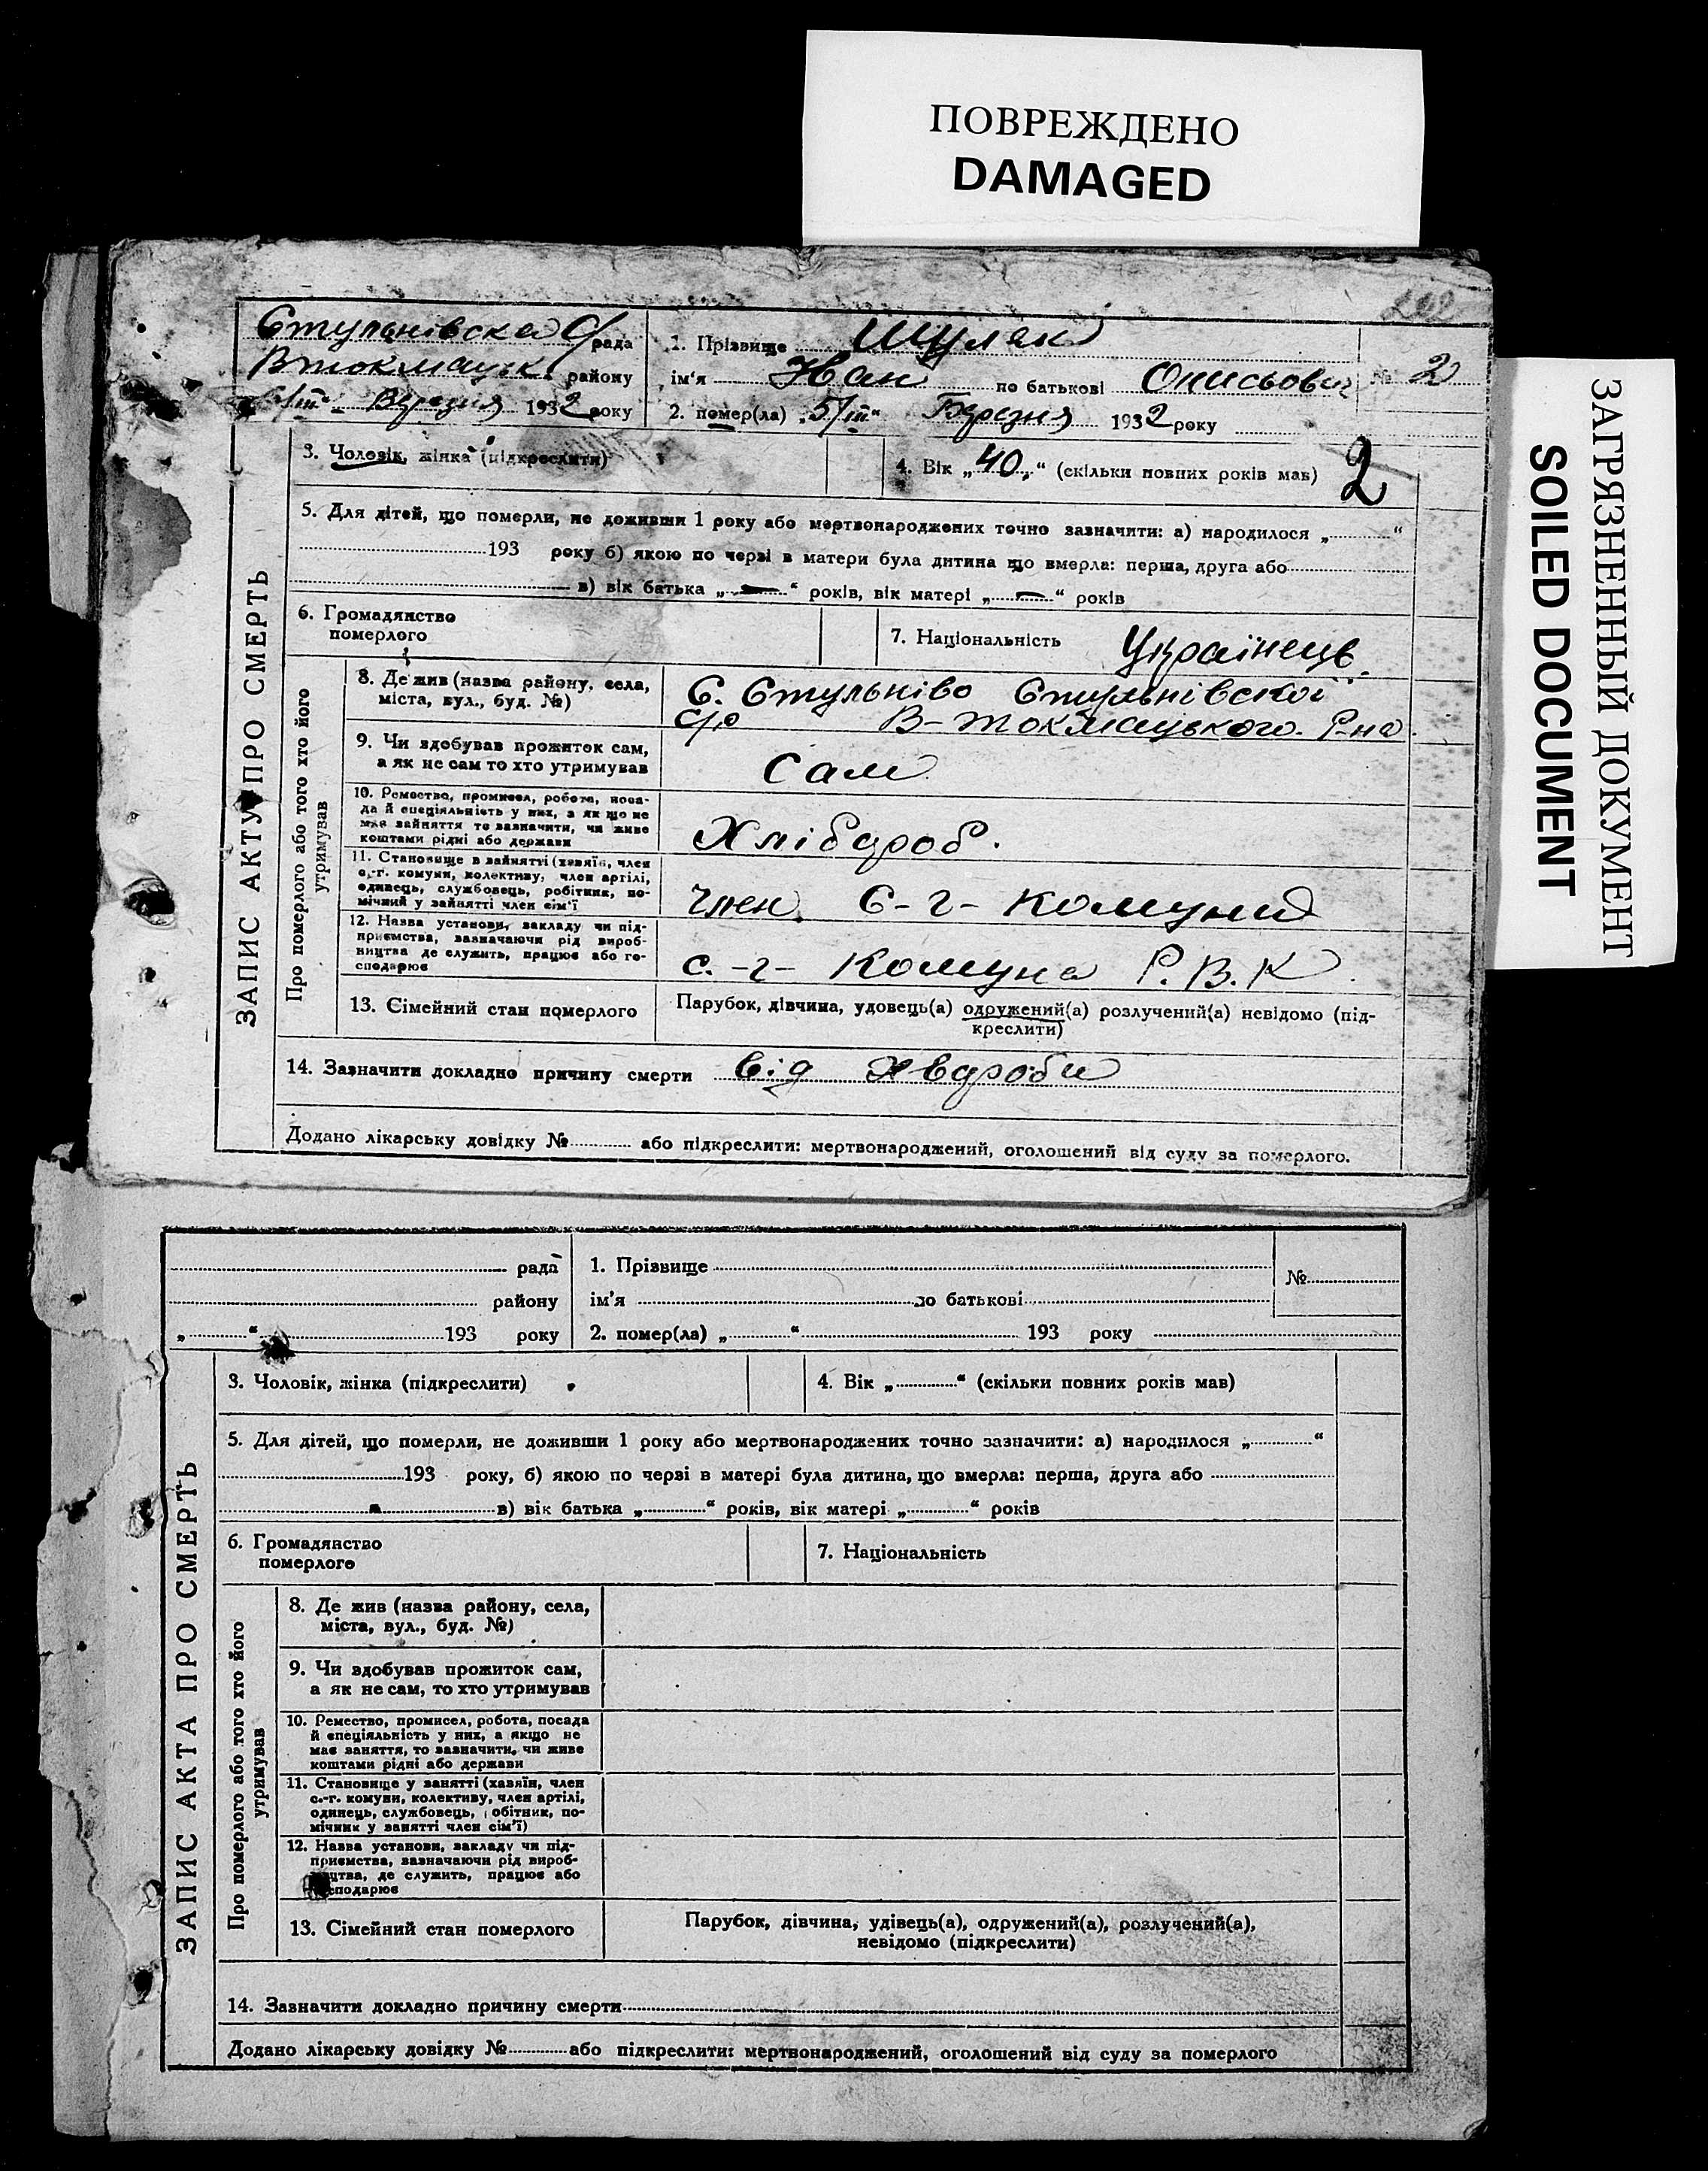 ПОВРЕЖДЕНО
DAMAGED
ЗАГРЯЗНЕННЫЙ ДОКУМЕНТ
SOILED DOCUMENT
ЗАПИС АКТУ ПРО СМЕРТЬ
Стульнівска С/рада
Втокмацьк району
Березня 1932 року
1. Прізвище Шуляк
ім'я Иван по батькові № 2
2. помер(ла) „5/III“ Березня 1932 року
3. Чоловік, жінка (підкреслити)
4. Вік „40“ (скільки повних років мав) 2
5. Для дітей, що померли, не доживши 1 року або мертвонароджених точно зазначити: а) народилося „ “
193 року б) якою по черзі в матери була дитина що вмерла: перша, друга або
в) вік батька „ — “ років, вік матері „ — “ років
6. Громадянство
померлого
7. Національність Українець
Про померлого або того хто його
утримував
8. Де жив (назва району, села,
міста, вул., буд. №)
С. Стульніво Стульнівської
с/р В-токмацького Р-на
9. Чи здобував прожиток сам,
а як не сам то хто утримував
Сам
10. Ремество, промисел, робота, поса-
да й спеціяльність у них, а як що не
має зайняття то зазначити, чи живе
коштами рідні або держави
Хлібороб.
11. Становище в зайнятті (хазяїн, член
с.-г. комуни, колективу, член артілі,
одинець, службовець, робітник, по-
мічний у зайнятті член сім'ї
член С-г- Комуни
12. Назва установи, закладу чи під-
приємства, зазначаючи рід вироб-
ництва де служить, працює або го-
сподарює
с.-г- Комуна Р.В.К
13. Сімейний стан померлого
Парубок, дівчина, удовець(а) одружений(а) розлучений(а) невідомо (під-
креслити)
14. Зазначити докладно причину смерти від хвороби
Додано лікарську довідку № або підкреслити: мертвонароджений, оголошений від суду за померлого.
ЗАПИС АКТА ПРО СМЕРТЬ
рада
району
„ “ 193 року
1. Прізвище
№
ім'я по батькові
2. помер(ла) „ “ 193 року
3. Чоловік, жінка (підкреслити)
4. Вік „ “ (скільки повних років мав)
5. Для дітей, що померли, не доживши 1 року або мертвонароджених точно зазначити: а) народилося „ “
193 року, б) якою по черзі в матері була дитина, що вмерла: перша, друга або
в) вік батька „ “ років, вік матері „ “ років
6. Громадянство
померлого
7. Національність
Про померлого або того хто його
утримував
8. Де жив (назва району, села,
міста, вул., буд. №)
9. Чи здобував прожиток сам,
а як не сам, то хто утримував
10. Ремество, промисел, робота, посада
й спеціяльність у них, а якщо не
має заняття, то зазначити, чи живе
коштами рідні або держави
11. Становище у занятті (хазяїн, член
с.-г. комуни, колективу, член артілі,
одинець, службовець, робітник, по-
мічник у занятті член сім'ї)
12. Назва установи, закладу чи під-
приємства, зазначаючи рід вироб-
ництва, де служить, працює або
господарює
13. Сімейний стан померлого
Парубок, дівчина, удівець(а), одружений(а), розлучений(а),
невідомо (підкреслити)
14. Зазначити докладно причину смерти
Додано лікарську довідку № або підкреслити: мертвонароджений, оголошений від суду за померлого